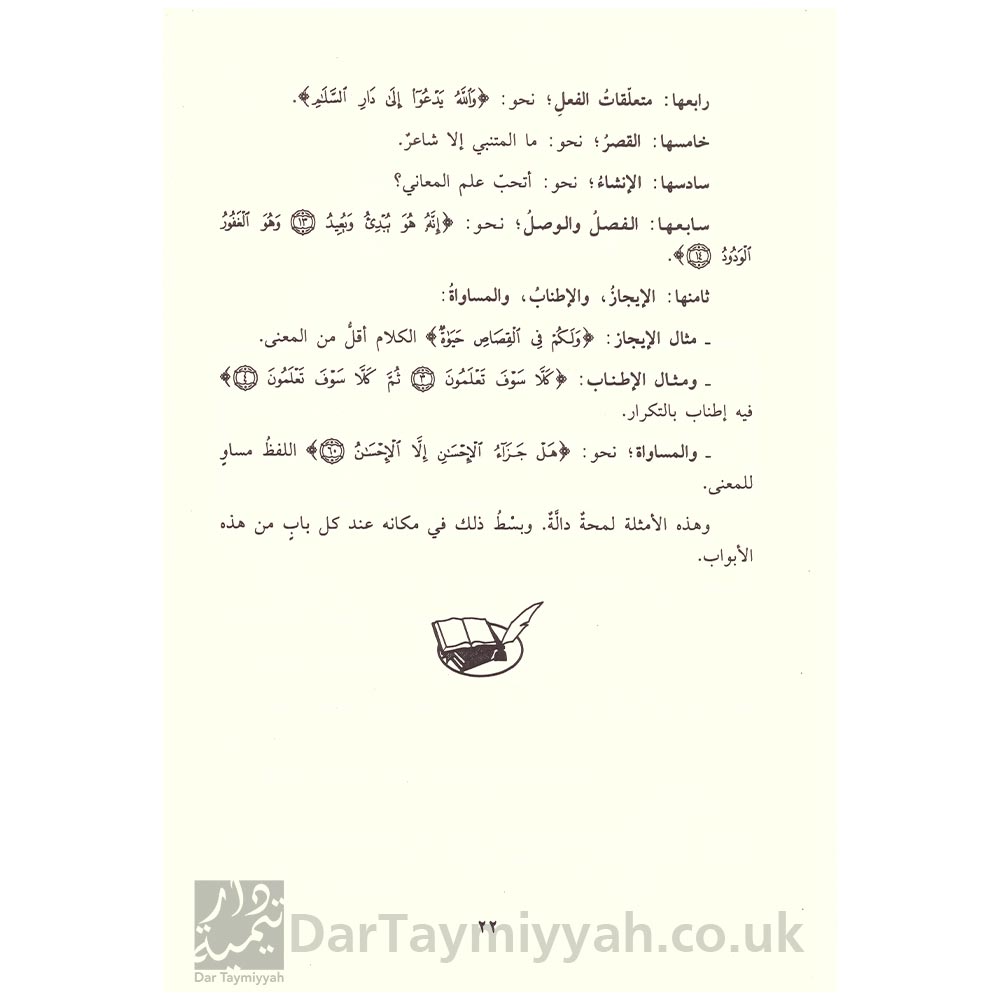 رابعها: متعلّقاتُ الفعلِ؛ نحو: ﴿وَٱللَّهُ يَدْعُوٓا۟ إِلَىٰ دَارِ ٱلسَّلَـٰمِ﴾.
خامسها: القصرُ؛ نحو: ما المتنبي إلا شاعرٌ.
سادسها: الإنشاءُ؛ نحو: أتحبّ علم المعاني؟
سابعها: الفصلُ والوصلُ؛ نحو: ﴿إِنَّهُۥ هُوَ يُبْدِئُ وَيُعِيدُ ١٣ وَهُوَ ٱلْغَفُورُ
ٱلْوَدُودُ ١٤﴾.
ثامنها: الإيجازُ، والإطنابُ، والمساواةُ:
ـ مثال الإيجاز: ﴿وَلَكُمْ فِى ٱلْقِصَاصِ حَيَوٰةٌ﴾ الكلام أقلُّ من المعنى.
ـ ومثال الإطناب: ﴿كَلَّا سَوْفَ تَعْلَمُونَ ٣ ثُمَّ كَلَّا سَوْفَ تَعْلَمُونَ ٤﴾
فيه إطناب بالتكرار.
ـ والمساواة؛ نحو: ﴿هَلْ جَزَآءُ ٱلْإِحْسَـٰنِ إِلَّا ٱلْإِحْسَـٰنُ ٦٠﴾ اللفظُ مساوٍ
للمعنى.
وهذه الأمثلة لمحةٌ دالَّةٌ. وبسْطُ ذلك في مكانه عند كل بابٍ من هذه
الأبواب.
٢٢
دار تيمية
Dar Taymiyyah
DarTaymiyyah.co.uk